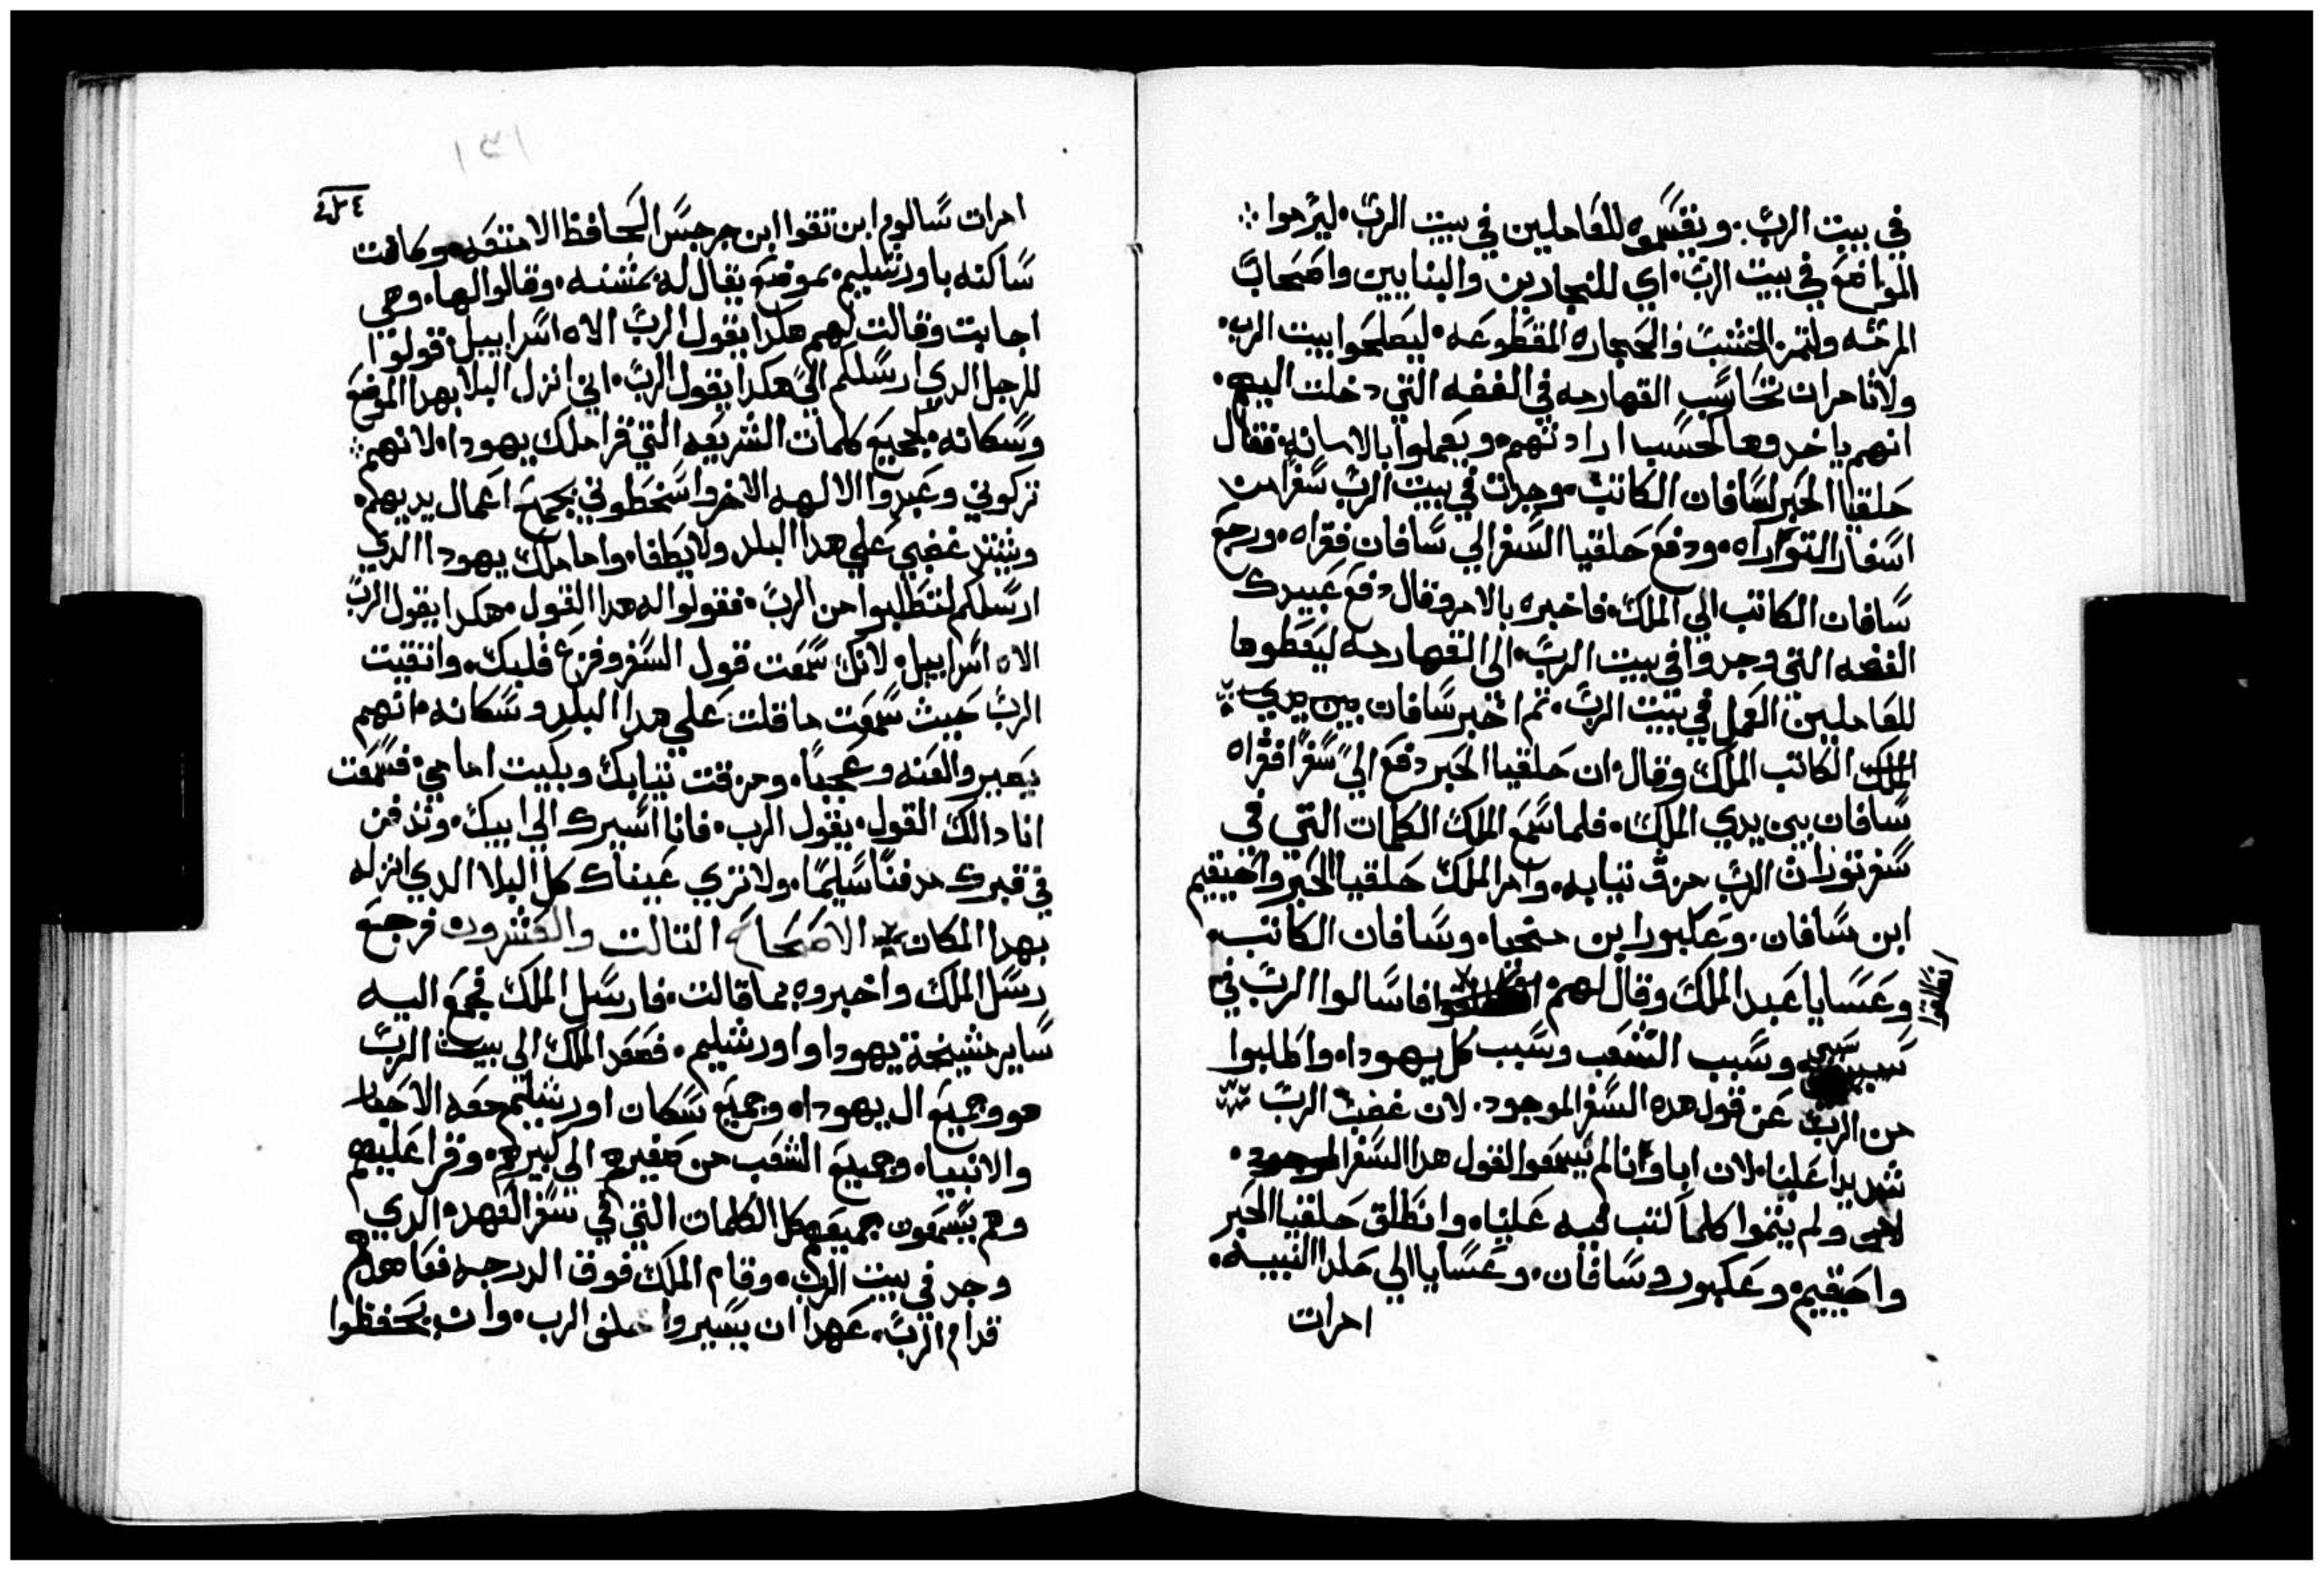 في بيت الرب. ويقسموه للعاملين في بيت الرب. ليرموا
المواضع في بيت الرب. اي للنجارين والبنايين واصحاب
المرمه ولتمن الخشب والحجاره المقطوعه. ليصلحوا بيت الرب.
ولا تامران تحاسب القهارمه في الفضه التي دخلت اليهم.
انهم ياخدوها لحسب ارادتهم. ويعملوا بالامانه. فقال
حلقيا الحبر لسافان الكاتب. وجدت في بيت الرب سفرا من
اسفار التوراه. ودفع حلقيا السفر الي سافان فقراه. ورجع
سافان الكاتب الي الملك. فاخبره بالامر وقال دفع عبيدك
الفضه التي وجدوا في بيت الرب. الي القهارمه ليعطوها
للعاملين العمل في بيت الرب. تم اخبر سافان بين يدي
الملك الكاتب الملك وقال. ان حلقيا الحبر دفع الي سفرا فقراه
سافان بين يدي الملك. فلما سمع الملك الكلمات التي في
سفر تورات الرب مزق تيابه. وامر الملك حلقيا الحبر واخيقيم
ابن سافان. وعكبور ابن ميخيا. وسافان الكاتب.
وعسايا عبد الملك وقال لهم انطلقوا فاسالوا الرب في
سببي وسبب الشعب وسبب كل يهودا. واطلبوا
من الرب عن قول هده السفر الموجود. لان غضب الرب
شديدا علينا. لان اباونا لم يسمعوا القول هدا السفر الموجود.
ولم يتموا كلما كتب فيه علينا. وانطلق حلقيا الحبر
واخيقيم. وعكبور وسافان. وعسايا الي خلدا النبيه.
امرات
امرات سالوم ابن تقوا ابن جرجس الحافظ الامتعه. وكانت
ساكنه باورشليم. بموضع يقال له مشنه. وقالوا لها. وهي
اجابت وقالت لهم هكدا يقول الرب الاه اسراييل. قولوا
للرجل الدي ارسلكم الي. هكدا يقول الرب. اني انزل البلا بهدا الموضع
وسكانه. لجميع كلمات الشريعه التي قرا ملك يهودا. لانهم
تركوني وعبدوا الالهه الاخر واسخطوني بجميع اعمال يديهم.
ويشتد غضبي علي هدا البلد ولا يطفا. واما ملك يهودا الدي
ارسلكم لتطلبوا من الرب. فقولوا له هدا القول. هكدا يقول الرب
الاه اسراييل. لانك سمعت قول السفر وفزع قلبك. واتقيت
الرب حيث سمعت ما قلت علي هدا البلد وسكانه. انهم
يصيروا لعنه وعجبا. ومزقت تيابك وبكيت امامي. فسمعت
انا دالك القول. يقول الرب. فانا اسيرك الي ابيك. وتدفن
في قبرك مدفنا سليما. ولا تري عيناك كل البلا الدي انزله
بهدا المكان الاصحاح التالت والعشرون فرجع
رسل الملك واخبروه بما قالت. فارسل الملك فجمع اليه
ساير مشيخة يهودا واورشليم. فصعد الملك الي بيت الرب
هو وجميع ال يهودا. وجميع سكان اورشليم معه الاحبار
والانبيا. وجميع الشعب من صغيرهم الي كبيرهم. وقرا عليهم
وهم يسمعون جميعهم كل الكلمات التي في سفر العهد. الدي
وجد في بيت الرب. وقام الملك فوق الدرجه فعاهدهم
قدام الرب. عهدا ان يسيروا خلف الرب. وان يحفظوا